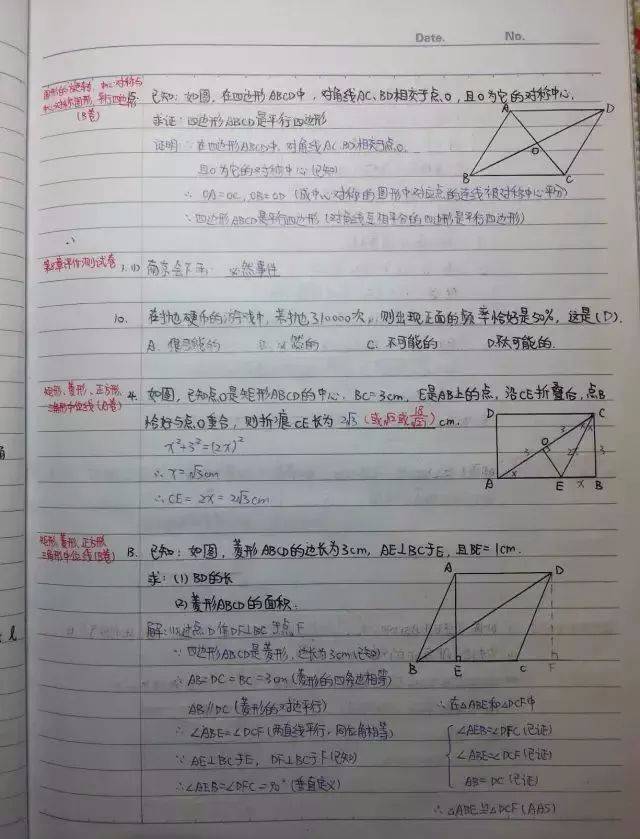 Date. No.
图形的旋转、中心对称与
中心对称图形、平行四边形
(B卷)
已知:如图,在四边形ABCD中,对角线AC、BD相交于点O,且O为它的对称中心.
求证:四边形ABCD是平行四边形
证明:∵在四边形ABCD中,对角线AC、BD相交于点O.
且O为它的对称中心(已知)
∴OA=OC,OB=OD(成中心对称的图形中对应点的连线被对称中心平分)
∴四边形ABCD是平行四边形(对角线互相平分的四边形是平行四边形)
A D
O
B C
第8章评价测试卷 1.(1) 南京会下雨: 必然事件
10. 在抛硬币的游戏中,若抛310000次,则出现正面的频率恰好是50%,这是(D).
A. B. 必然的 C. 不可能的 D.
矩形、菱形、正方形、
三角形中位线(A卷)
4. 如图,已知点O是矩形ABCD的中心,BC=3cm,E是AB上的点,沿CE折叠后,点B
恰好与点O重合,则折痕CE长为 2√3 (或√12或 ) cm.
x²+3²=(2x)²
∴x=√3cm
∴CE=2x=2√3cm
D C
O 3
3 2x 3
A x E x B
矩形、菱形、正方形、
三角形中位线(B卷)
13. 已知:如图,菱形ABCD的边长为3cm,AE⊥BC于E,且BE=1cm.
求:(1)BD的长
(2)菱形ABCD的面积.
解:(1)过点D作DF⊥BC于点F
∵四边形ABCD是菱形,边长为3cm(已知)
∴AB=DC=BC=3cm(菱形的四条边相等)
AB∥DC(菱形的对边平行)
∴∠ABE=∠DCF(两直线平行,同位角相等)
∵AE⊥BC于E,DF⊥BC于F(已知)
∴∠AEB=∠DFC=90°(垂直定义)
A D
B E C F
∴在△ABE和△DCF中
∠AEB=∠DFC(已证)
∠ABE=∠DCF(已证)
AB=DC(已证)
∴△ABE≌△DCF(AAS)